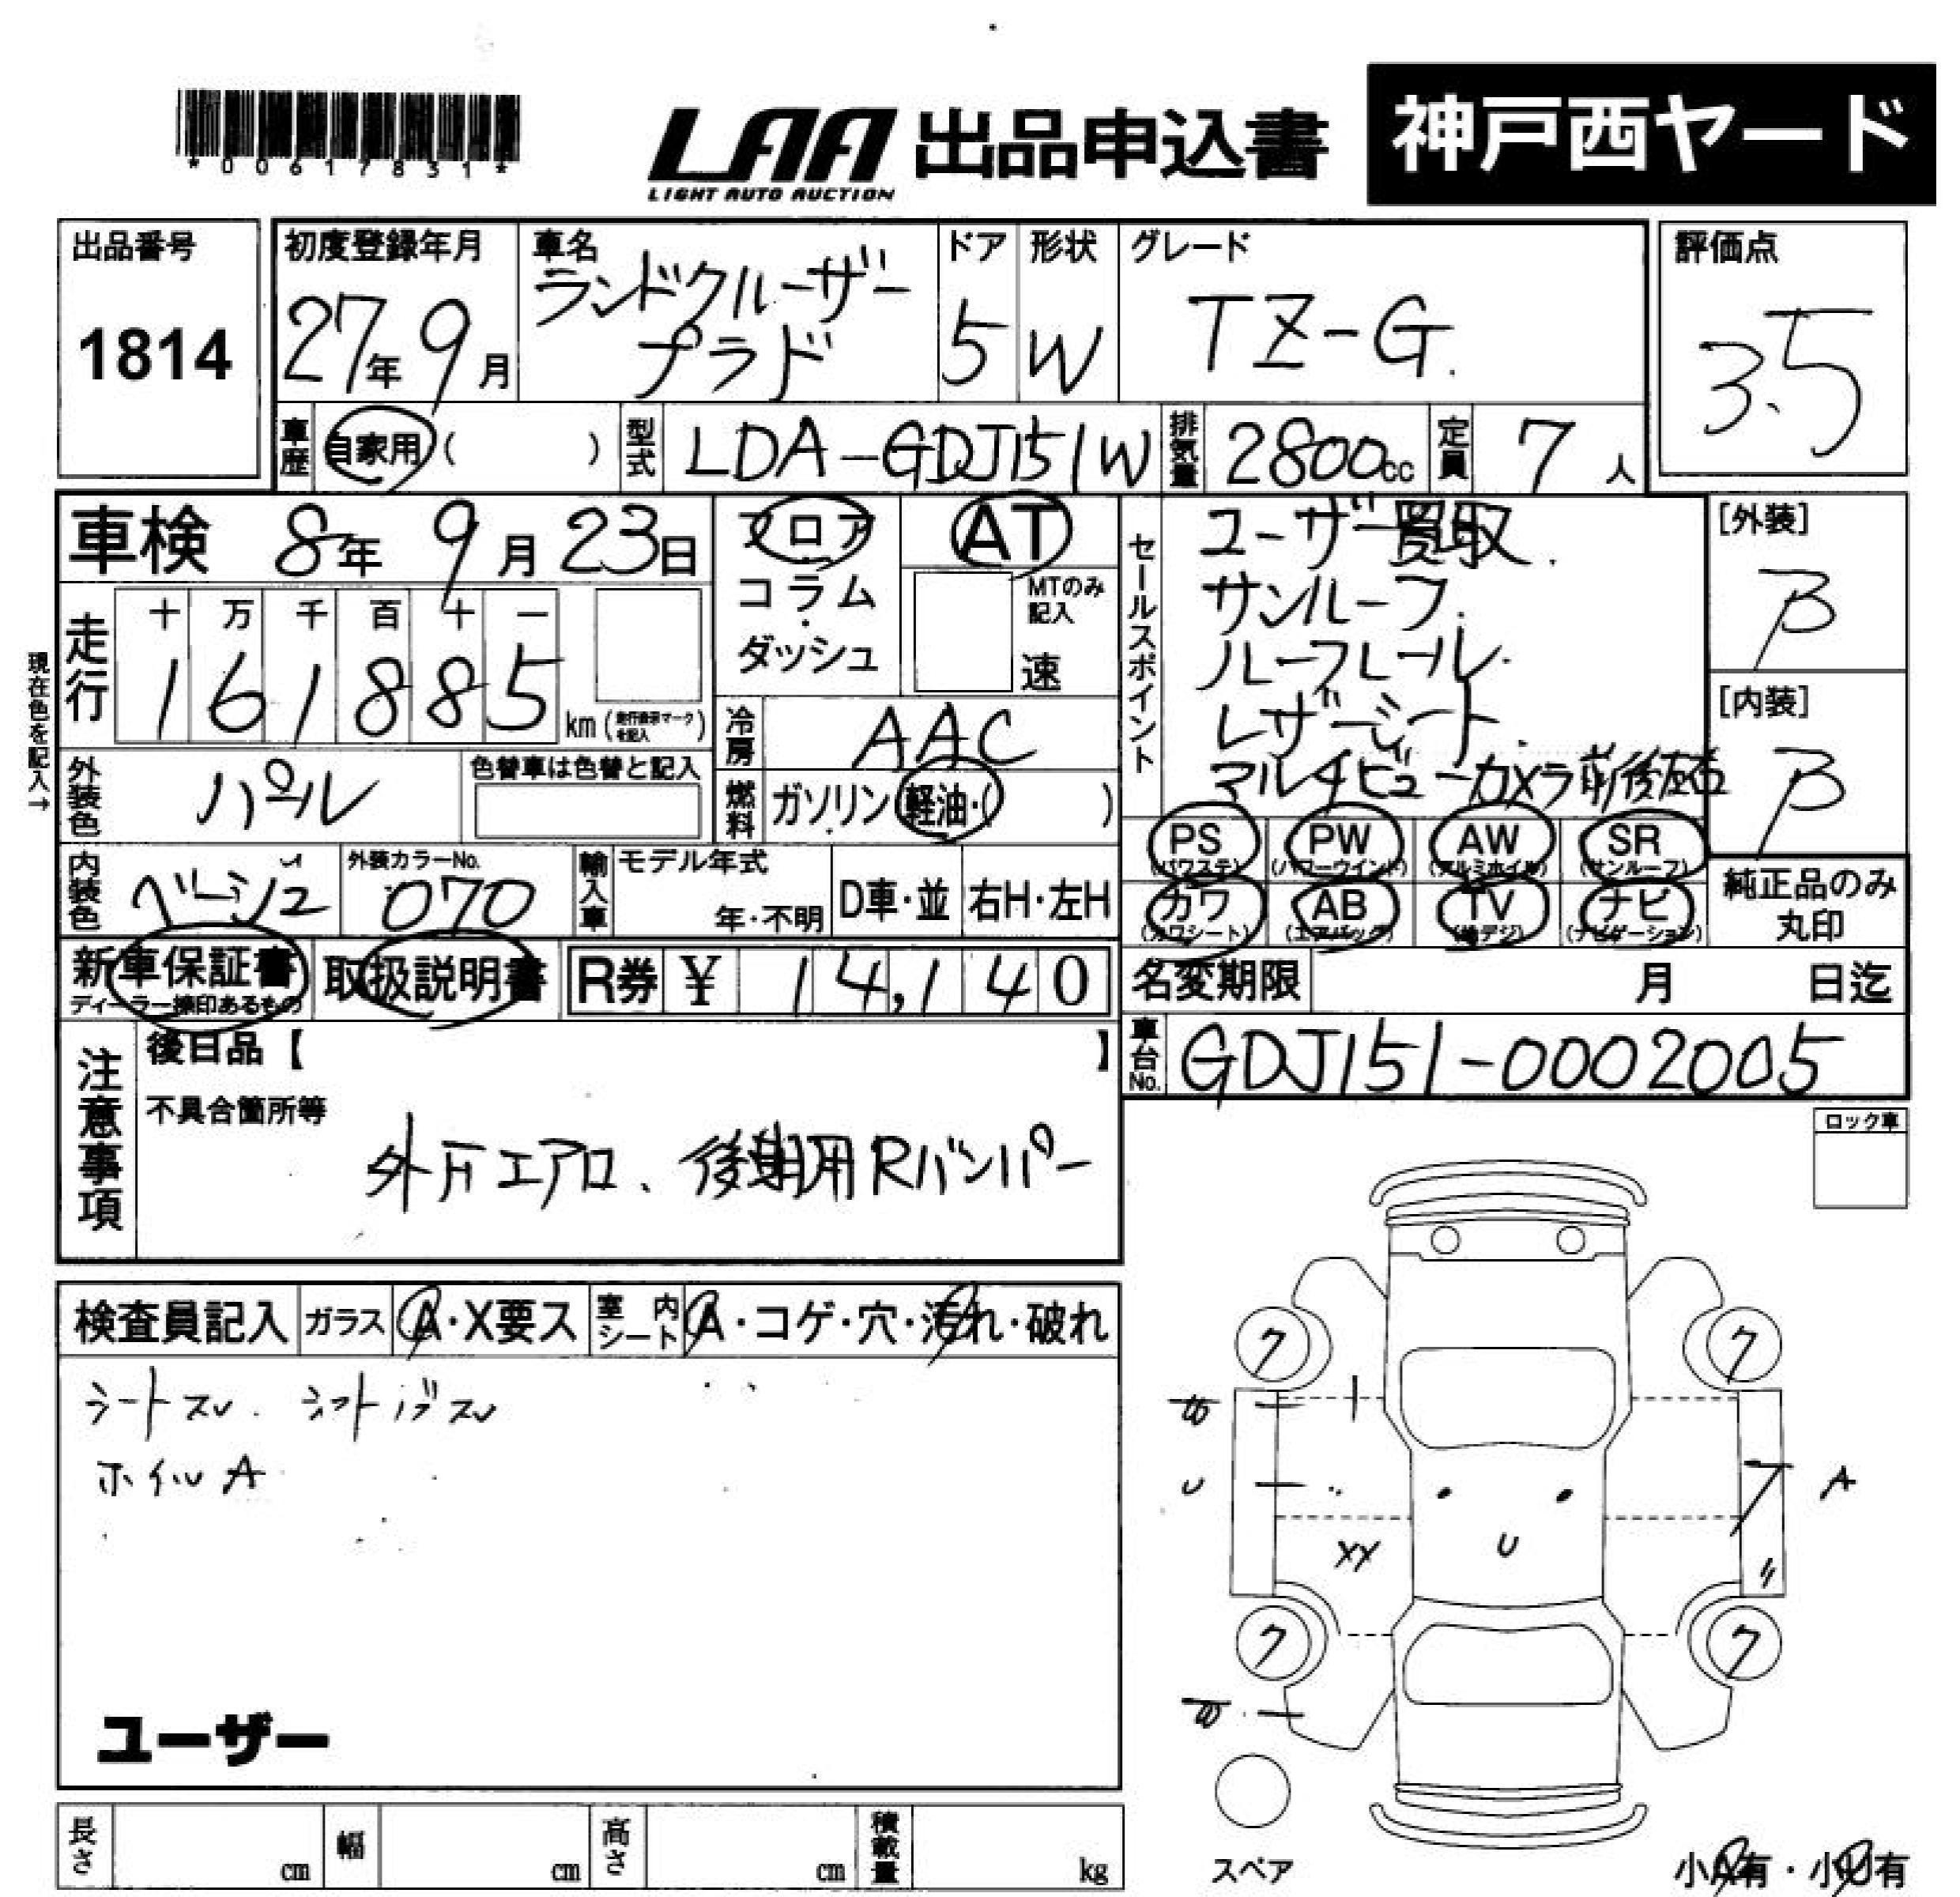 *00617831*
LAA 出品申込書
LIGHT AUTO AUCTION
神戸西ヤード
出品番号
1814
初度登録年月
27年9月
車名
ランドクルーザー
プラド
ドア
5
形状
W
グレード
TZ-G
評価点
3.5
車歴
自家用( )
型式
LDA-GDJ151W
排気量
2800cc
定員
7人
車検 8年9月23日
フロア
コラム・
ダッシュ
AT
MTのみ
記入
速
セールスポイント
ユーザー買取
サンルーフ
ルーフレール
レザーシート
マルチビューカメラ前後左右
[外装]
B
[内装]
B
現在色を記入→
走行
十 万 千 百 十 一
1 6 1 8 8 5
km(走行表示マークを記入)
冷房
AAC
外装色
パール
色替車は色替と記入
燃料
ガソリン・軽油・( )
内装色
ベージュ
外装カラーNo.
070
輸入車
モデル年式
年・不明
D車・並
右H・左H
PS
(パワステ)
PW
(パワーウインド)
AW
(アルミホイル)
SR
(サンルーフ)
カワ
(カワシート)
AB
(エアバッグ)
TV
(地デジ)
ナビ
(ナビゲーション)
純正品のみ
丸印
新車保証書
ディーラー捺印あるもの
取扱説明書
R券 ¥ 14,140
名変期限 月 日迄
車台No.
GDJ151-0002005
注意事項
後日品【 】
不具合箇所等
外品エアロ、後期用Rバンパー
ロック車
検査員記入
ガラス
A・X要ス
室内シート
A・コゲ・穴・汚れ・破れ
シートスレ シフトノブスレ
ホイルA
ユーザー
ク
ク
U
A
XX
U
ク
ク
スペア
小A有・小U有
長さ cm
幅 cm
高さ cm
積載量 kg